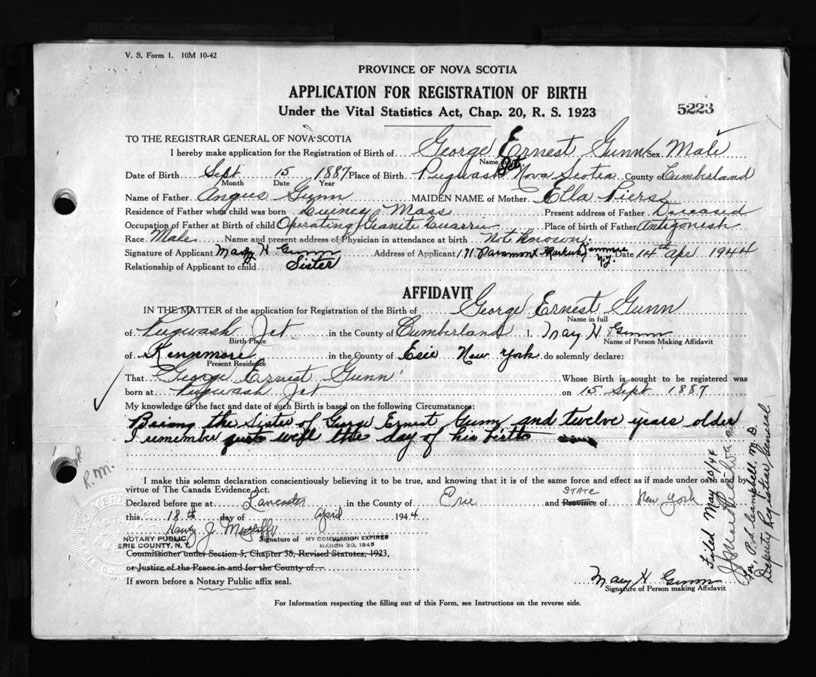 V. S. Form 1. 10M 10-42
PROVINCE OF NOVA SCOTIA
APPLICATION FOR REGISTRATION OF BIRTH
Under the Vital Statistics Act, Chap. 20, R. S. 1923
5223
TO THE REGISTRAR GENERAL OF NOVA SCOTIA
I hereby make application for the Registration of Birth of George Ernest Gunn Sex Male
Name
Date of Birth Sept 15 1887 Place of Birth Pugwash Jct. Nova Scotia County of Cumberland
Month Date Year
Name of Father Angus Gunn MAIDEN NAME of Mother Ella Piers
Residence of Father when child was born Quincy Mass Present address of Father Deceased
Occupation of Father at Birth of child Operating Granite Quarry Place of Birth of Father Antigonish
Race Male Name and present address of Physician in attendance at birth Not Known
Signature of Applicant Mary H Gunn Address of Applicant 171 Paramont Parkway Kenmore N.Y. Date 14th Apr 1944
Relationship of Applicant to child Sister
AFFIDAVIT
IN THE MATTER of the application for Registration of the Birth of George Ernest Gunn
Name in full
of Pugwash Jct in the County of Cumberland I, Mary H Gunn
Birth Place Name of Person Making Affidavit
of Kennmore in the County of Erie New York do solemnly declare:
Present Residence
That George Ernest Gunn Whose Birth is sought to be registered was
born at Pugwash Jct on 15 Sept 1887
My knowledge of the fact and date of such Birth is based on the following Circumstances:
Being the Sister of George Ernest Gunn and twelve years older
I remember quite well the day of his birth
I make this solemn declaration conscientiously believing it to be true, and knowing that it is of the same force and effect as if made under oath and by
virtue of The Canada Evidence Act.
Declared before me at Lancaster in the County of Erie and Province of STATE New York
this 18th day of April 1944
Harry J.
NOTARY PUBLIC Signature of MY COMMISSION EXPIRES
ERIE COUNTY, N.Y. MARCH 30, 1945
Commissioner under Section 5, Chapter 38, Revised Statutes, 1923,
or Justice of the Peace in and for the County of
If sworn before a Notary Public affix seal.
Mary H Gunn
Signature of Person making Affidavit
For Information respecting the filling out of this Form, see Instructions on the reverse side.
R.M.
Filed May 10/44
for P.S. Campbell, M.D.
Deputy Registrar General